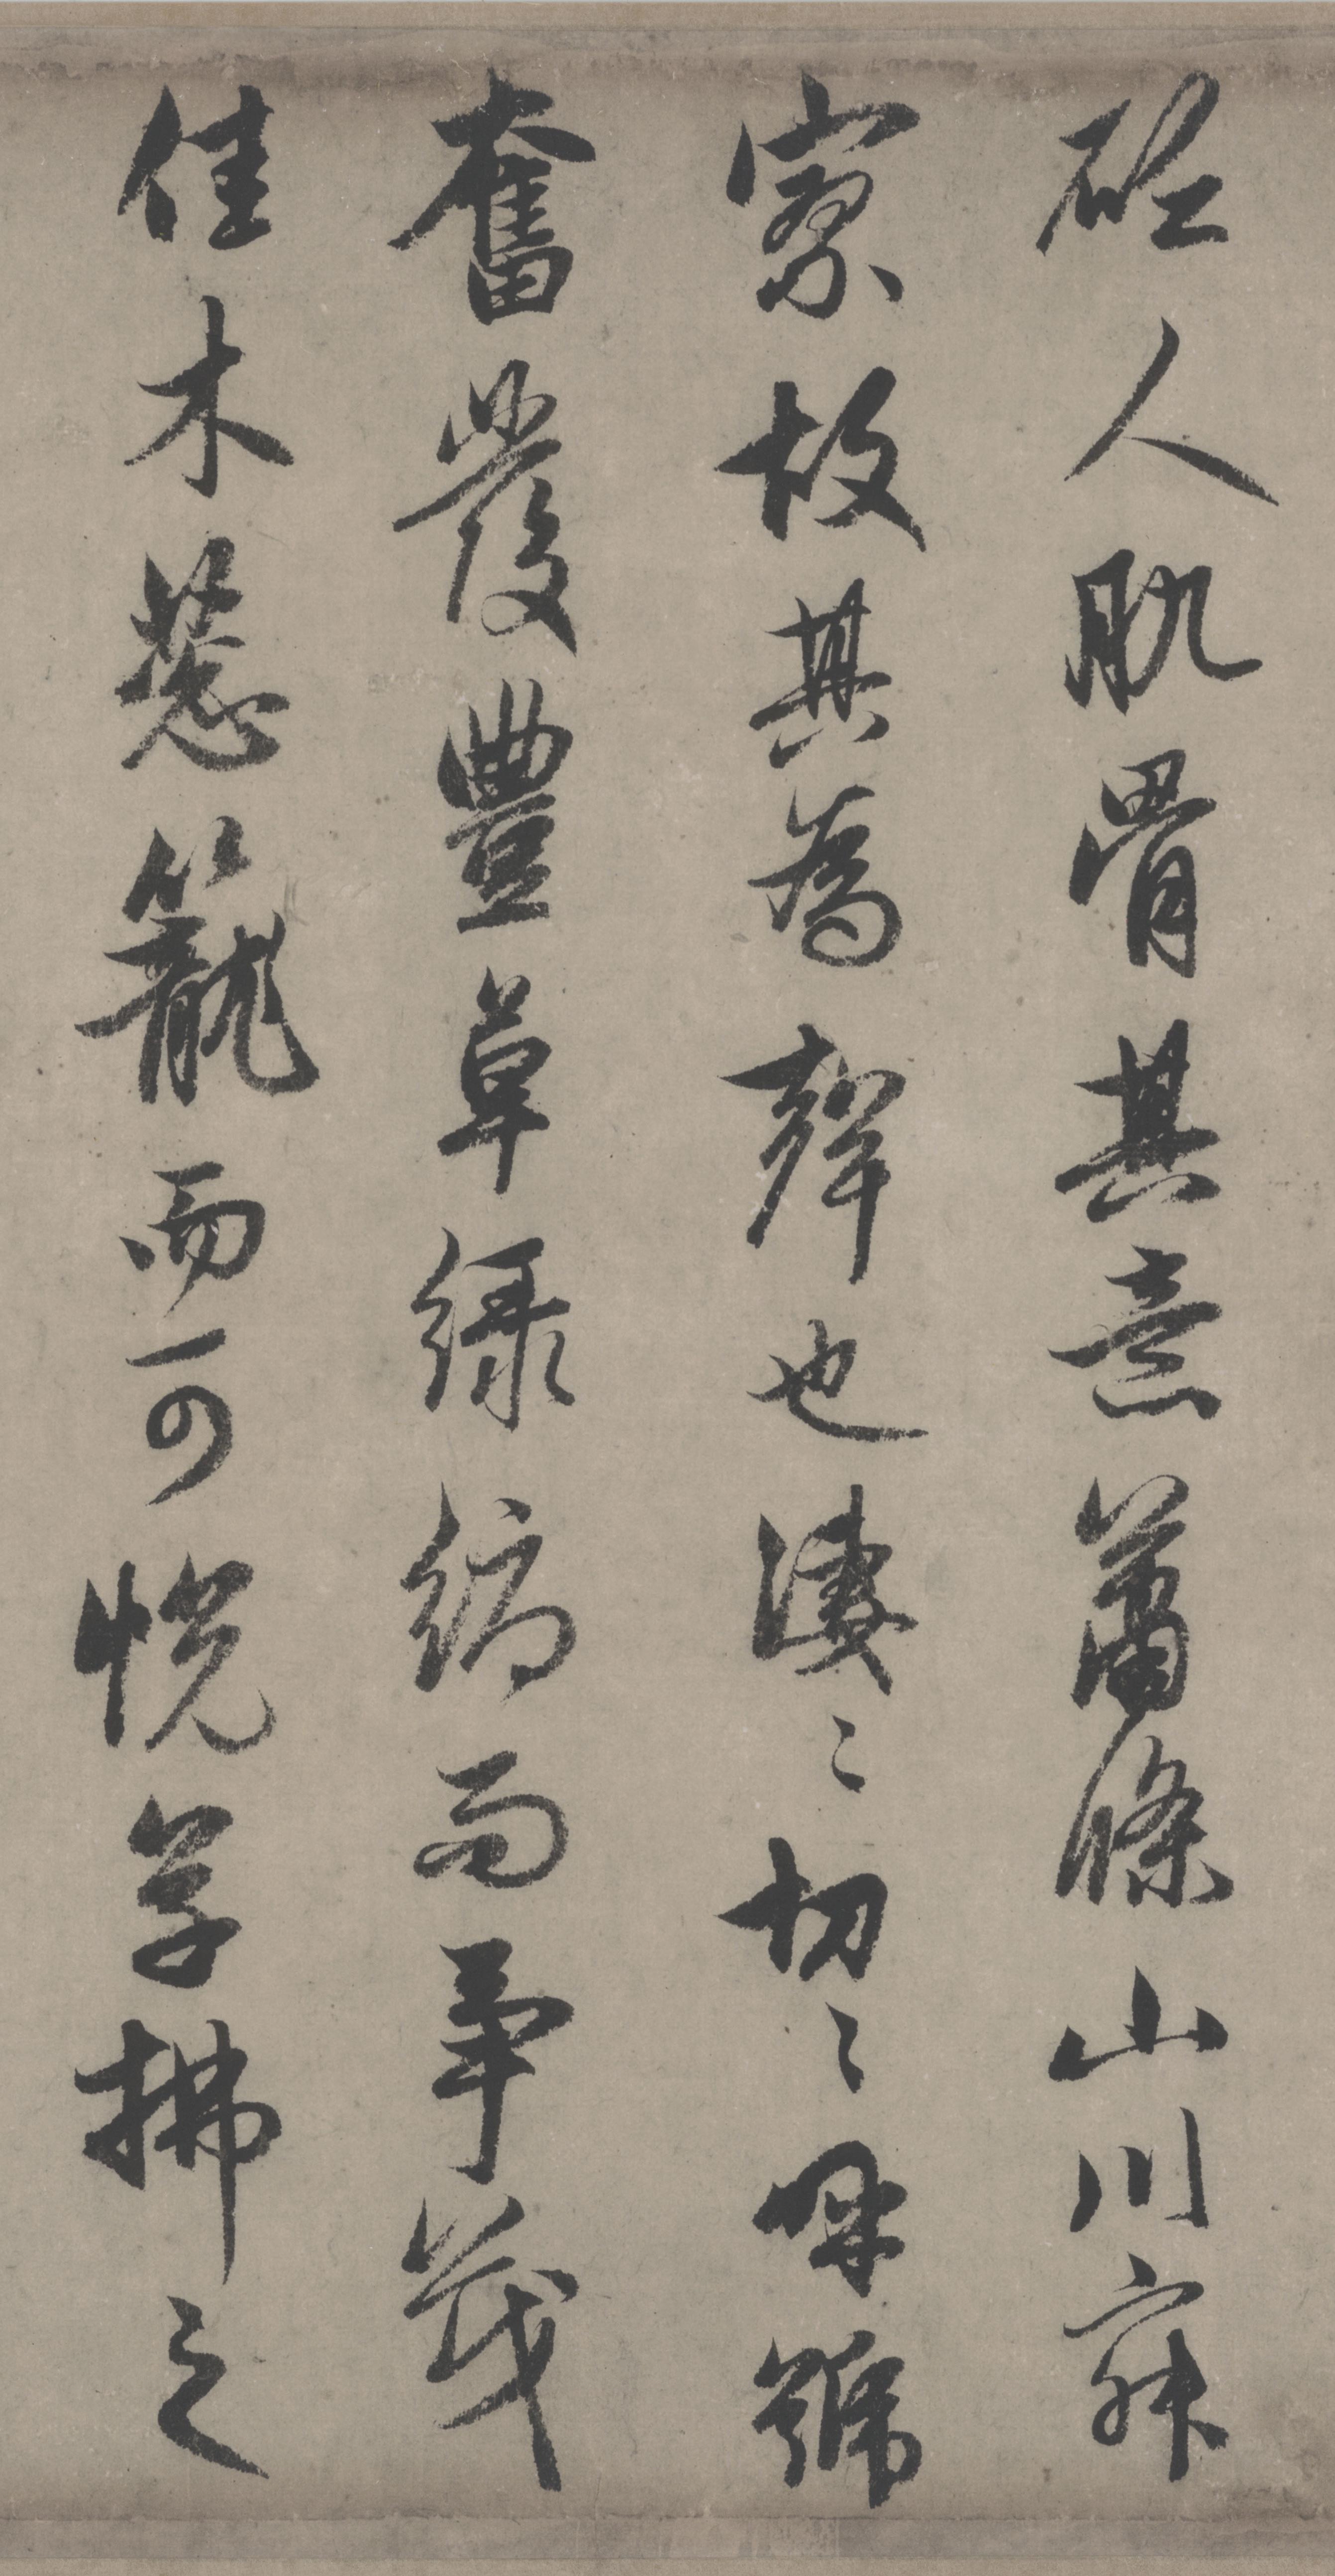 砭人肌骨其意蕭條山川寂
寥故其為聲也淒〻切〻呼號
奮發豐草綠縟而爭茂
佳木葱籠而可悅草拂之